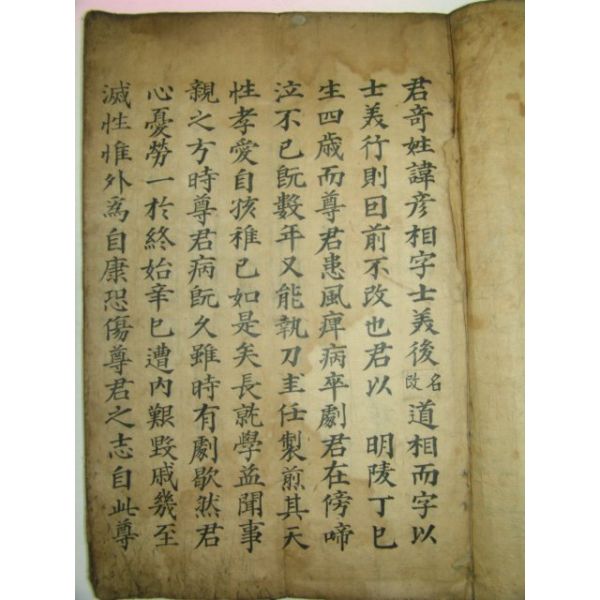 君奇姓諱彦相字士美後改名道相而字以
士美行則因前不改也君以 明陵丁巳
生四歳而尊君患風痺病卒劇君在傍啼
泣不已旣數年又能執刀圭任製煎其天
性孝愛自孩稚已如是矣長就學益聞事
親之方時尊君病旣久雖時有劇歇然君
心憂勞一於終始辛巳遭内艱毀戚幾至
滅性惟外爲自康恐傷尊君之志自此尊